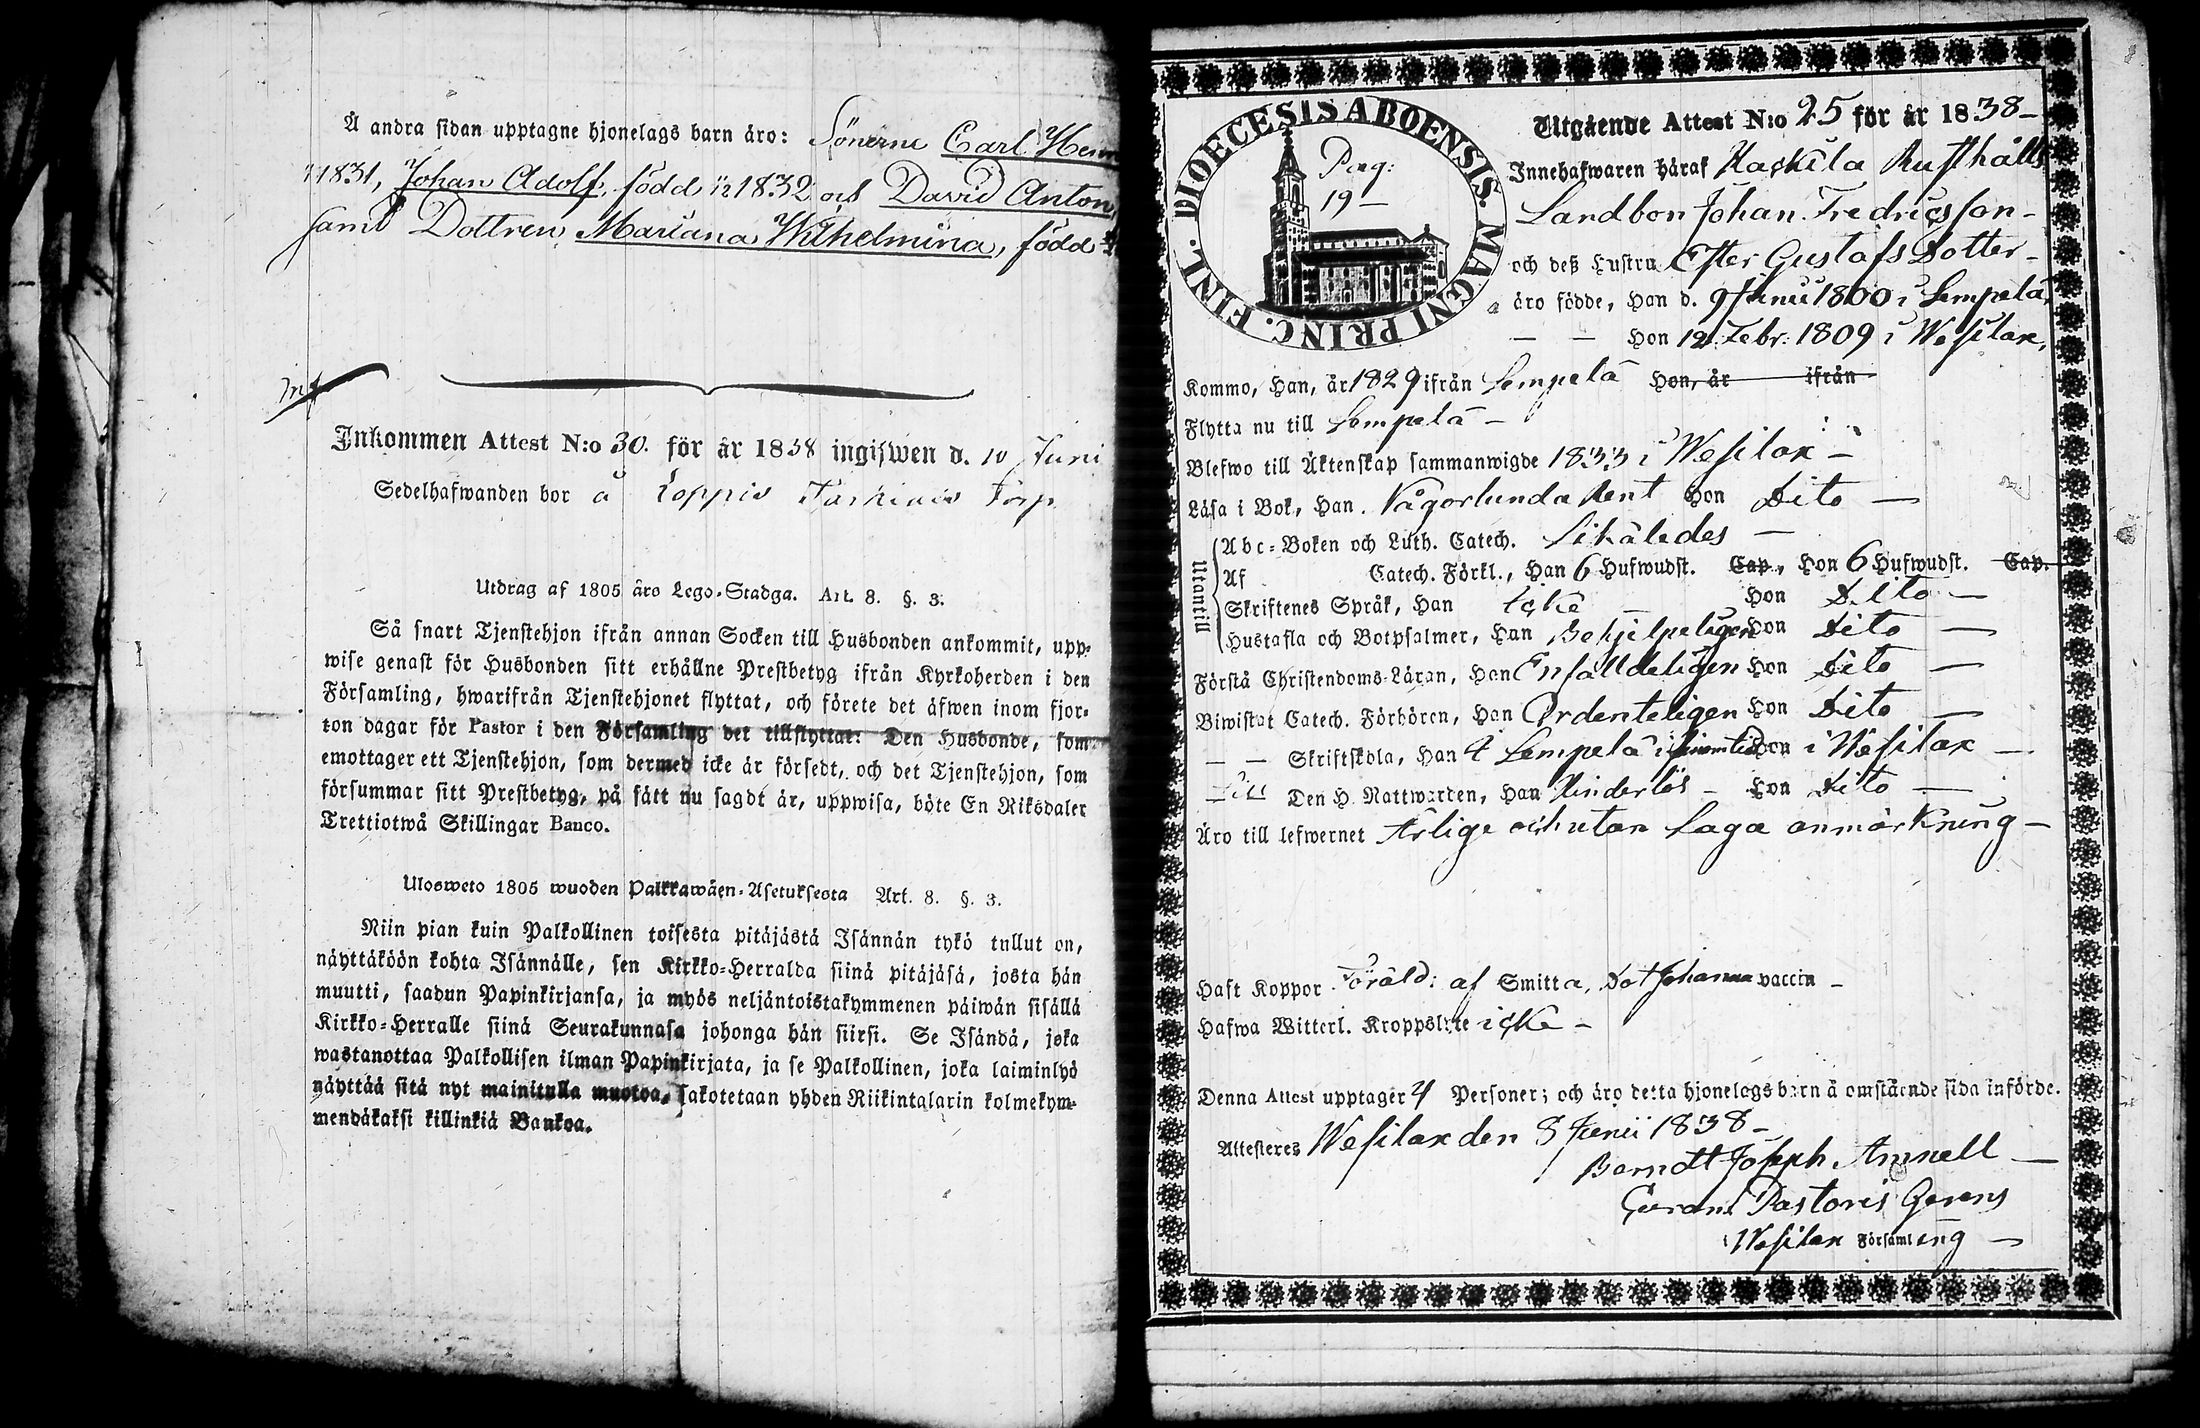 Å andra sidan upptagne hjonelags barn äro: Sönerne Carl
1831, Johan Adolf, född 1832 och David Anton
samt Dottren Mariana Wilhelmina, född
Inkommen Attest N:o 30. för år 1838 ingifwen d. 10 Juni
Sedelhafwanden bor å Loppis Torp
Utdrag af 1805 års Lego-Stadga. Art. 8. §. 3.
Så snart Tjenstehjon ifrån annan Socken till Husbonden ankommit, upp-
wise genast för Husbonden sitt erhållne Prestbetyg ifrån Kyrkoherden i den
Församling, hwarifrån Tjenstehjonet flyttat, och förete det äfwen inom fjor-
ton dagar för Pastor i den Församling det tillflyttat: Den Husbonde, som
emottager ett Tjenstehjon, som dermed icke är försedt, och det Tjenstehjon, som
försummar sitt Prestbetyg, på sätt nu sagdt är, uppwisa, böte En Riksdaler
Trettiotwå Skillingar Banco.
Ulosweto 1805 wuoden Palkkawäen-Asetuksesta Art. 8. §. 3.
Niin pian kuin Palkollinen toisesta pitäjästä Isännän tykö tullut on,
näyttäköön kohta Isännälle, sen Kirkko-Herralda siinä pitäjäsä, josta hän
muutti, saadun Papinkirjansa, ja myös neljäntoistakymmenen päiwän sisällä
Kirkko-Herralle siinä Seurakunnasa johonga hän siirsi. Se Isändä, joka
wastanottaa Palkollisen ilman Papinkirjata, ja se Palkollinen, joka laiminlyö
näyttää sitä nyt mainitulla muotoa, sakotetaan yhden Riikintalarin kolmekym-
mendäkaksi killinkiä Bankoa.
DIOECESIS ABOENSIS. MAGNI PRINC. FINL.
Pag:
19
Utgående Attest N:o 25 för år 1838
Innehafwaren häraf Kaskila Rusthålls
Landbon Johan Fredricsson
och deß Hustru Ester Gustafs Dotter
äro födde, Han d. 9 Junii 1800 i Lempelä,
Hon 12 Febr: 1809 i Wesilax,
Kommo, Han, år 1829 ifrån Lempelä Hon, år ifrån
Flytta nu till Lempelä
Blefwo till Äktenskap sammanwigde 1833 i Wesilax
Läsa i Bok, Han Någorlunda Rent Hon Dito
Utantill
Abc-Boken och Luth. Catech. Likaledes
Af Catech. Förkl., Han 6 Hufwudst. Cap., Hon 6 Hufwudst. Cap.
Skriftenes Språk, Han icke Hon Dito
Hustafla och Botpsalmer, Han Behjelpeligen Hon Dito
Förstå Christendoms-Läran, Han Enfalldeligen Hon Dito
Biwistat Catech. Förhören, Han Ordenteligen Hon Dito
Skriftskola, Han i Lempelä Hon i Wesilax
Den H. Nattwarden, Han Hinderlös Hon Dito
Äro till lefwernet Ärlige och utan Laga anmärkning
Haft Koppor Föräld: af Smitta, Dot Johanna vaccin
Hafwa Witterl. Kroppslyte icke
Denna Attest upptager 4 Personer; och äro detta hjonelags barn å omstående sida införde.
Attesteres Wesilax den 8 Junii 1838
Berndt Joseph Amnell
Pastoris Gerens
Wesilax Församling